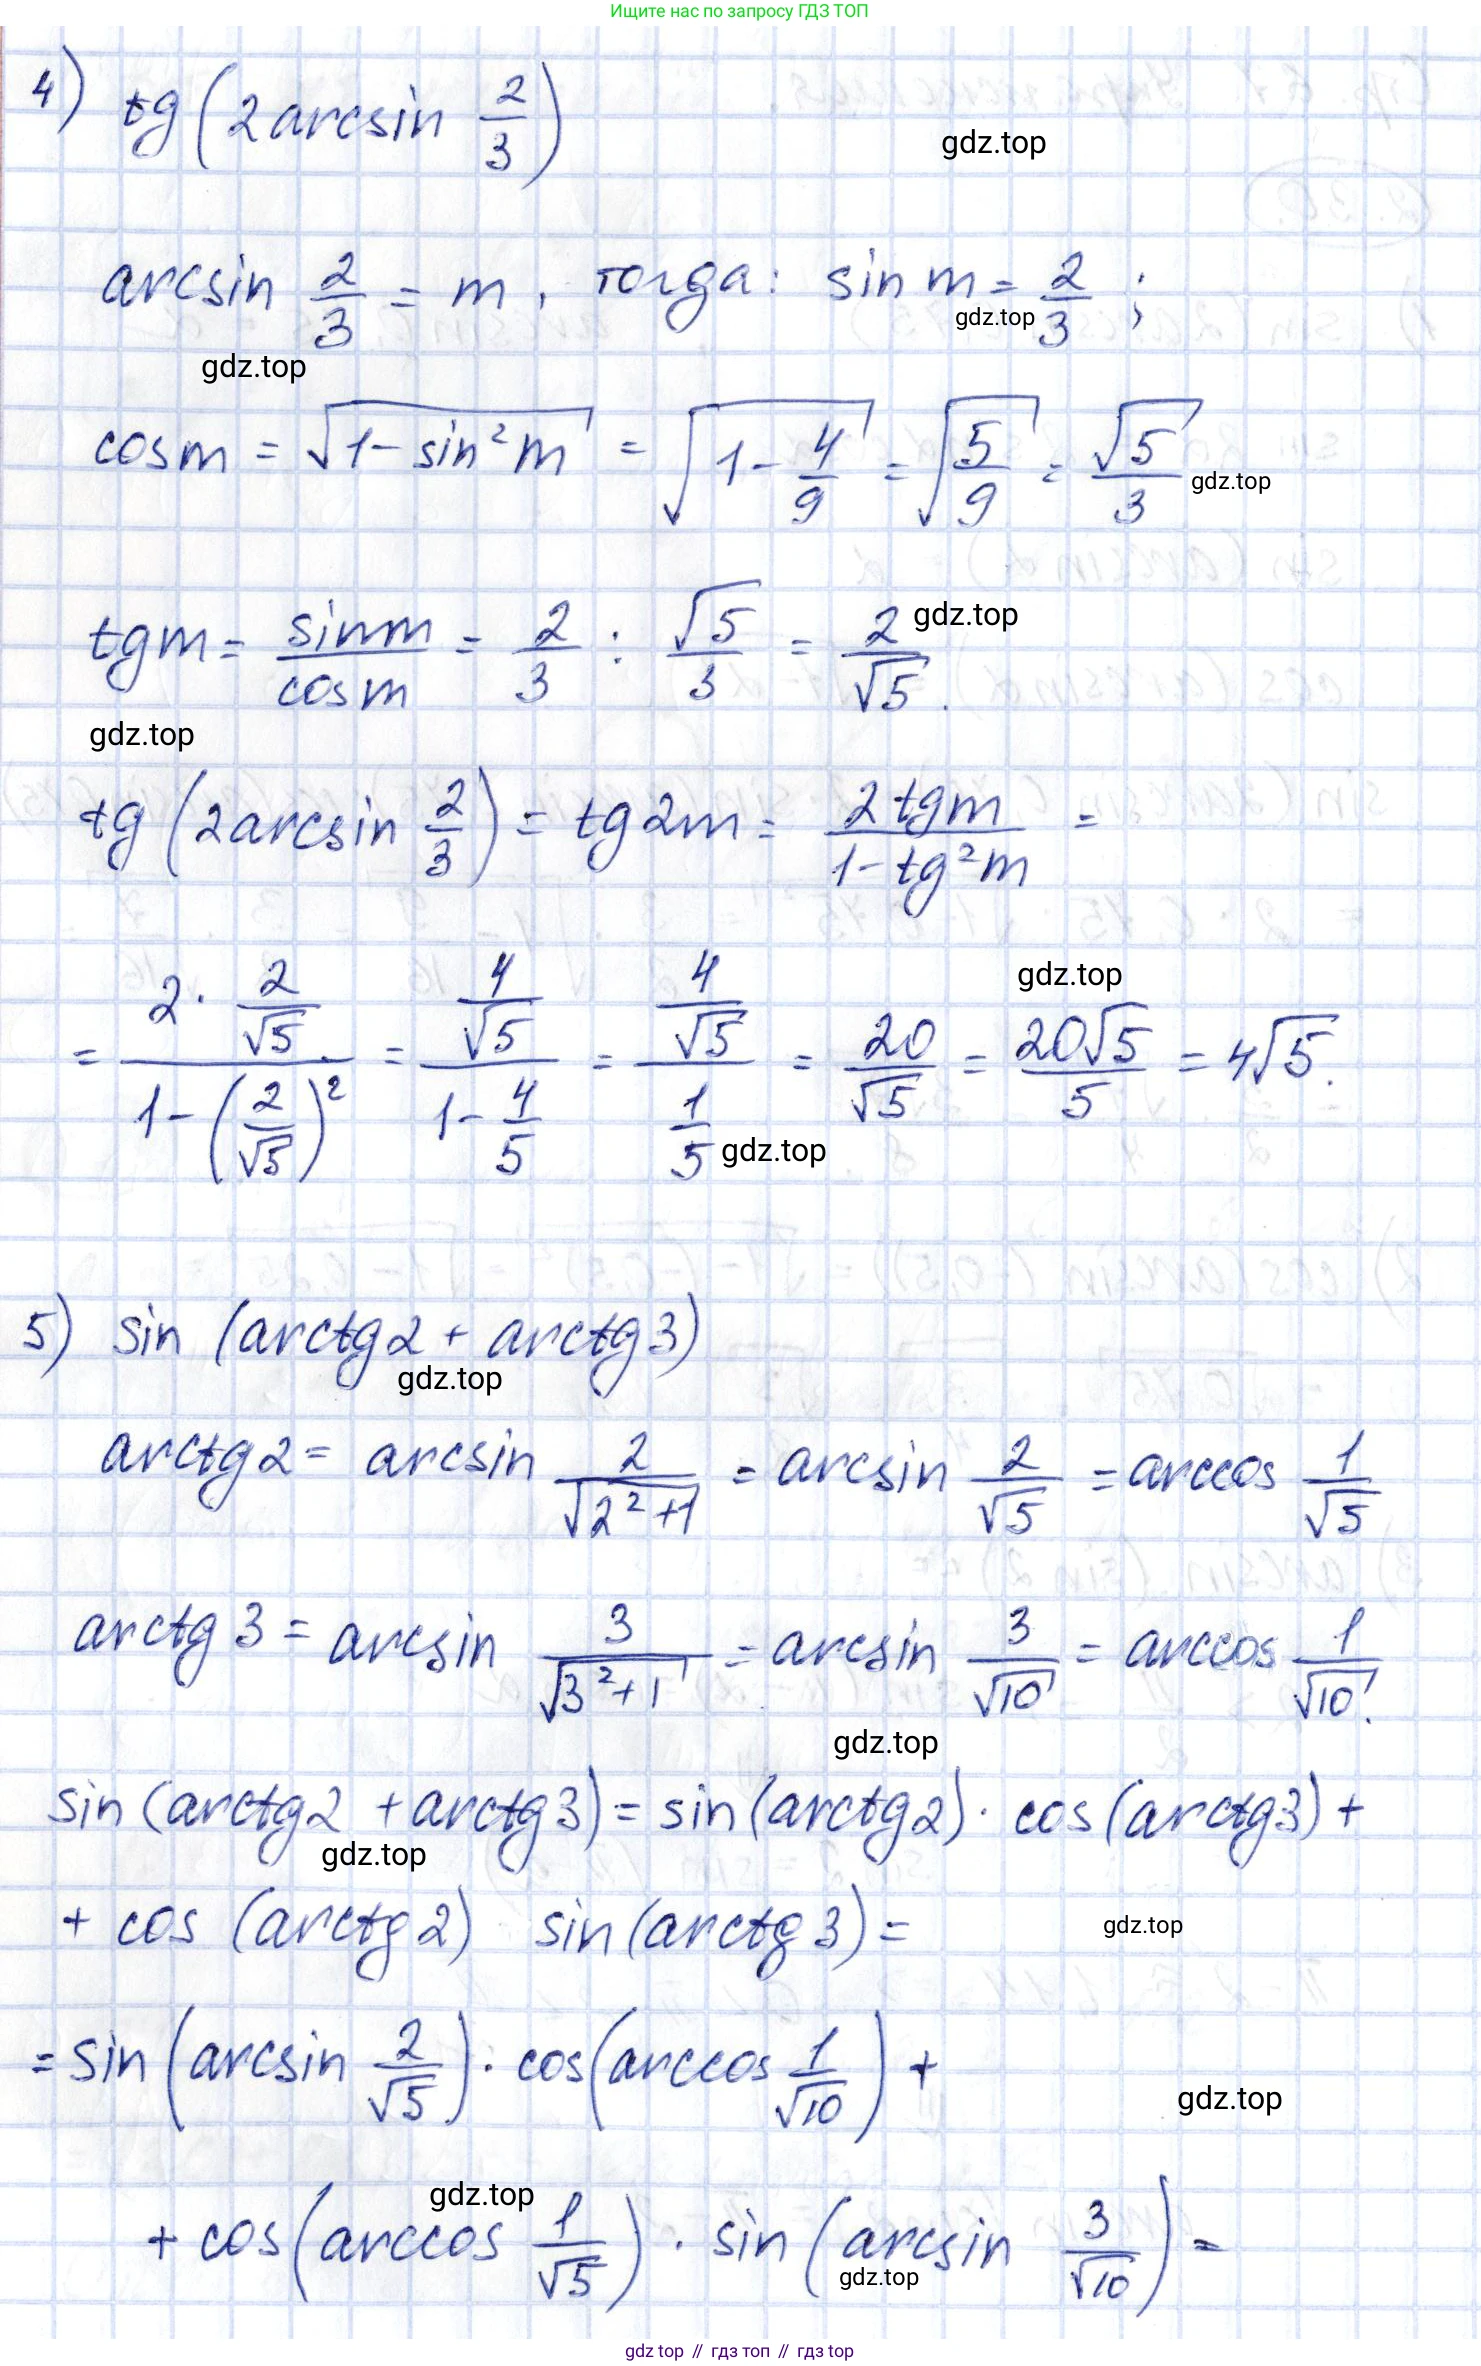 Ищите нас по запросу ГДЗ ТОП
4) tg(2arcsin 2/3)
gdz.top
arcsin 2/3 = m, тогда: sin m = 2/3;
gdz.top
gdz.top
cos m = √(1 - sin²m) = √(1 - 4/9) = √(5/9) = √5/3
gdz.top
tg m = sin m/cos m = 2/3 : √5/3 = 2/√5.
gdz.top
gdz.top
tg(2arcsin 2/3) = tg 2m = 2tg m/(1 - tg²m) =
= (2 · 2/√5)/(1 - (2/√5)²) = (4/√5)/(1 - 4/5) = (4/√5)/(1/5) = 20/√5 = 20√5/5 = 4√5.
gdz.top
gdz.top
5) sin (arctg 2 + arctg 3)
gdz.top
arctg 2 = arcsin 2/√(2²+1) = arcsin 2/√5 = arccos 1/√5
arctg 3 = arcsin 3/√(3²+1) = arcsin 3/√10 = arccos 1/√10.
gdz.top
sin(arctg 2 + arctg 3) = sin(arctg 2) · cos(arctg 3) +
gdz.top
+ cos (arctg 2) sin(arctg 3) =
gdz.top
= sin(arcsin 2/√5) · cos(arccos 1/√10) +
gdz.top
gdz.top
+ cos(arccos 1/√5) · sin(arcsin 3/√10) =
gdz.top
gdz top // гдз топ // гдз top